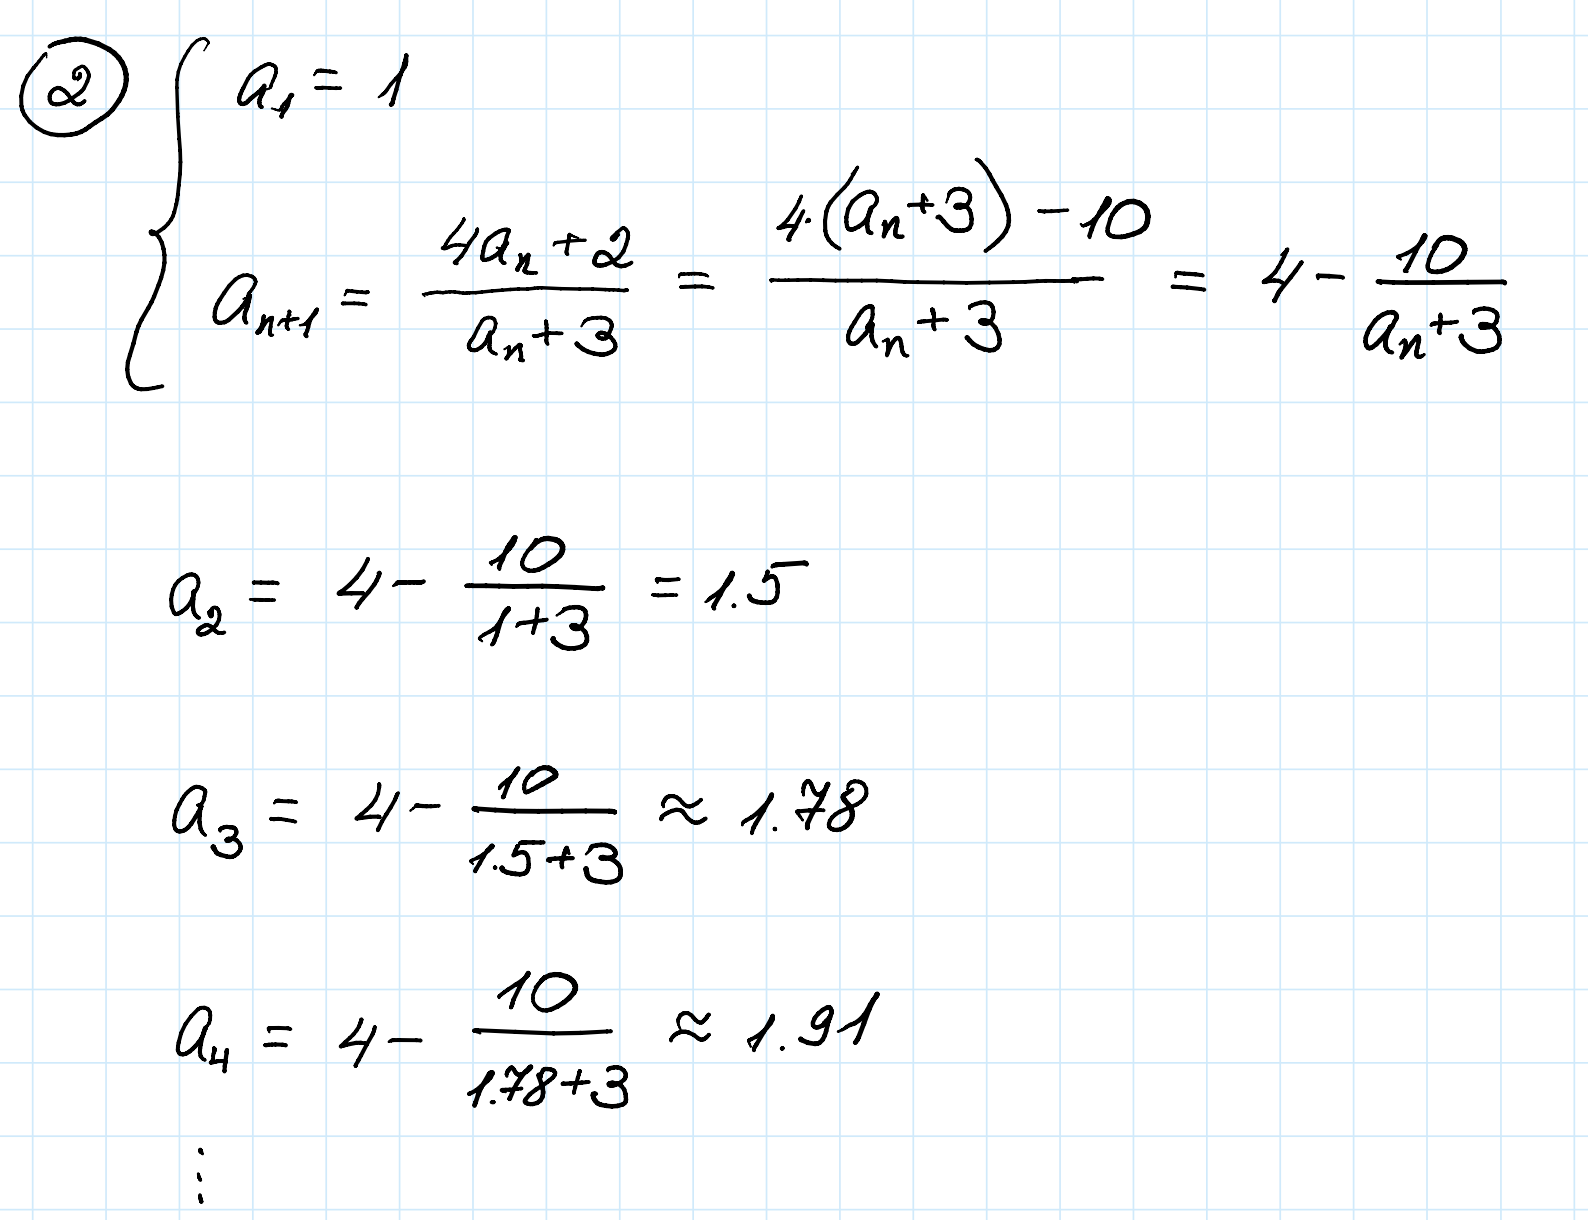 ② { a₁ = 1
aₙ₊₁ = (4aₙ + 2)/(aₙ + 3) = (4·(aₙ + 3) − 10)/(aₙ + 3) = 4 − 10/(aₙ + 3)
a₂ = 4 − 10/(1 + 3) = 1.5
a₃ = 4 − 10/(1.5 + 3) ≈ 1.78
a₄ = 4 − 10/(1.78 + 3) ≈ 1.91
⋮